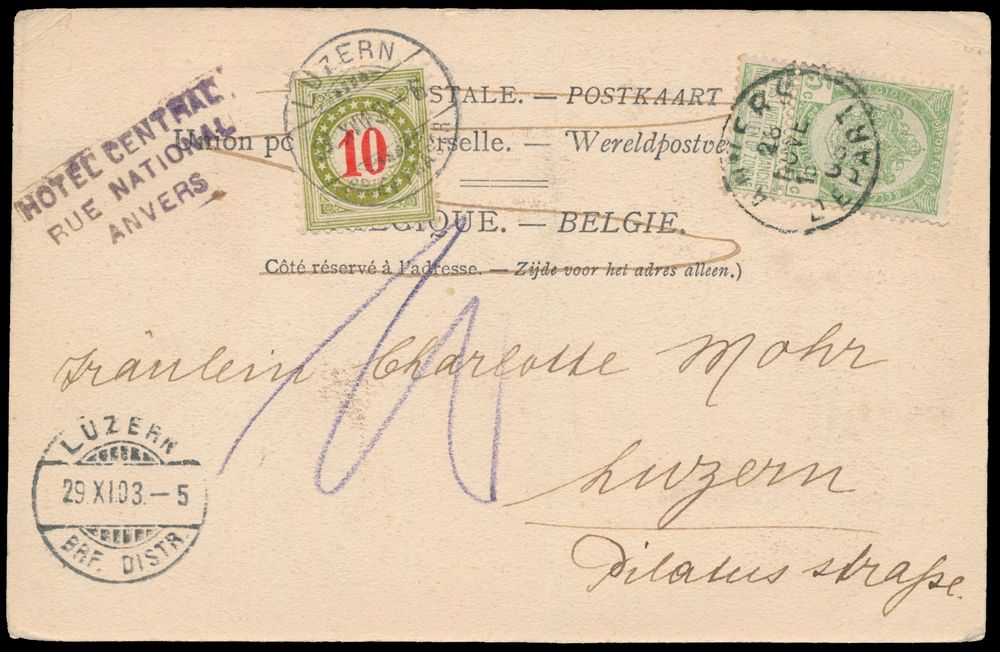 HOTEL CENTRAL
RUE NATIONAL
ANVERS
LUZERN
10
STALE. — POSTKAART
Union erselle. — Wereldpostve
QUE. — BELGIE.
Côté réservé à l'adresse. — Zijde voor het adres alleen.)
5
ANVERS
28
NOVE
1903
DEPART
10
Fräulein Charlotte Mohr
Luzern
Pilatus straße.
LUZERN
29.XI.03.–5
BRF. DISTR.